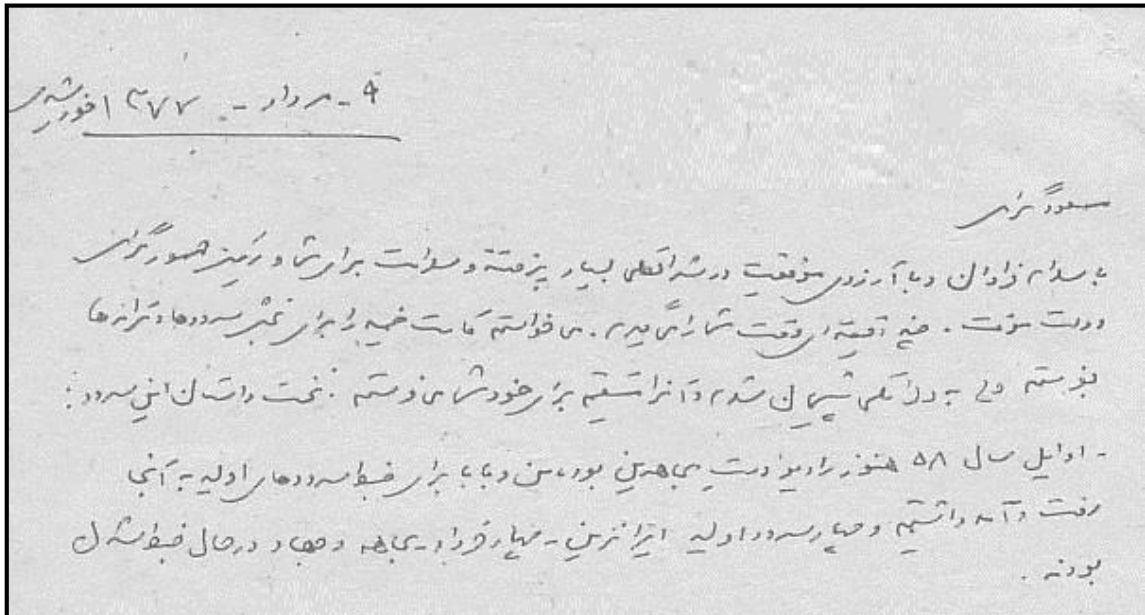 ۹ - مرداد - ۱۳۷۷ خورشیدی
مسعود گرامی
با سلام فراوان و با آرزوی موفقیت در شرائطی بسیار پیچیده و سلامت برای شما و رئیس جمهور گرامی
دولت موقت . چند دقیقه‌ای وقت شما را می‌گیرم . می‌خواستم کاست ضمیمه را برای بخش سرودها و ترانه‌ها
بفرستم ولی به دلائلی پشیمان شدم و آنرا مستقیم برای خود شما می‌فرستم . نخست داستان این سرود :
- اوایل سال ۵۸ هنوز رادیو در دست مجاهدین بود، من و بابا برای ضبط سرودهای اولیه به آنجا
رفت و آمد داشتیم و چهار سرود اولیه ایران زمین - چهار فرد - مجاهد و جهاد در حال ضبط شدن
بودند .